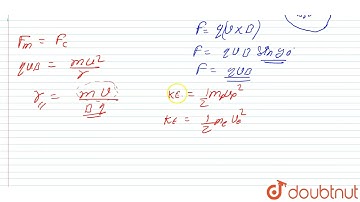 Fm = Fc
qvB = mv²/r
r,, = mv/Bq
F = q(v×B)
F = qvB sin90
F = qvB
KE = 1/2 mpvp²
KE = 1/2 me ve²
doubtnut